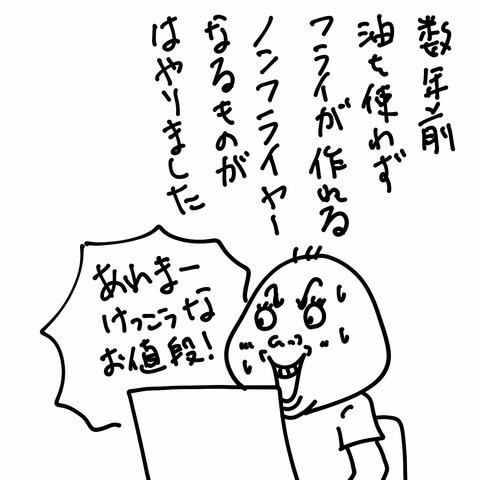 数年前
油を使わず
フライが作れる
ノンフライヤー
なるものが
はやりました
あれまー
けっこうな
お値段!